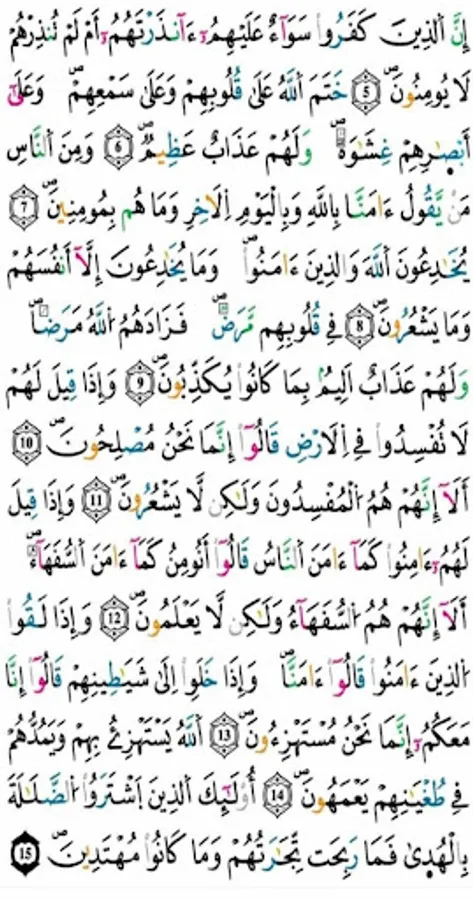 إِنَّ اَ۬لذِينَ كَفَرُواْ سَوَآءٌ عَلَيْهِمُۥٓ ءَآنذَرْتَهُمُۥٓ أَمْ لَمْ تُنذِرْهُمْ
لَا يُومِنُونَۖ ٥ خَتَمَ اَ۬للَّهُ عَلَىٰ قُلُوبِهِمْ وَعَلَىٰ سَمْعِهِمْۖ وَعَلَىٰٓ
أَبْصَٰرِهِمْ غِشَٰوَةٞۖ وَلَهُمْ عَذَابٌ عَظِيمٞۖ ٦ وَمِنَ اَ۬لنَّاسِ
مَنْ يَّقُولُ ءَامَنَّا بِاللَّهِ وَبِالْيَوْمِ اِ۬لَاخِرِ وَمَا هُم بِمُومِنِينَۖ ٧
يُخَٰدِعُونَ اَ۬للَّهَ وَالذِينَ ءَامَنُواْۖ وَمَا يُخَٰدِعُونَ إِلَّآ أَنفُسَهُمْ
وَمَا يَشْعُرُونَۖ ٨ فِے قُلُوبِهِم مَّرَضٞۖ فَزَادَهُمُ اُ۬للَّهُ مَرَضاٗۖ
وَلَهُمْ عَذَابٌ اَلِيمُۢ بِمَا كَانُواْ يُكَذِّبُونَۖ ٩ وَإِذَا قِيلَ لَهُمْ
لَا تُفْسِدُواْ فِے اِ۬لَارْضِ قَالُوٓاْ إِنَّمَا نَحْنُ مُصْلِحُونَۖ ١٠
أَلَآ إِنَّهُمْ هُمُ اُ۬لْمُفْسِدُونَ وَلَٰكِن لَّا يَشْعُرُونَۖ ١١ وَإِذَا قِيلَ
لَهُمُۥٓ ءَامِنُواْ كَمَآ ءَامَنَ اَ۬لنَّاسُ قَالُوٓاْ أَنُومِنُ كَمَآ ءَامَنَ اَ۬لسُّفَهَآءُۖ
أَلَآ إِنَّهُمْ هُمُ اُ۬لسُّفَهَآءُ وَلَٰكِن لَّا يَعْلَمُونَۖ ١٢ وَإِذَا لَقُواْ
اُ۬لذِينَ ءَامَنُواْ قَالُوٓاْ ءَامَنَّاۖ وَإِذَا خَلَوِاْ اِلَىٰ شَيَٰطِينِهِمْ قَالُوٓاْ إِنَّا
مَعَكُمُۥٓ إِنَّمَا نَحْنُ مُسْتَهْزِءُونَۖ ١٣ اَ۬للَّهُ يَسْتَهْزِئُ بِهِمْ وَيَمُدُّهُمْ
فِے طُغْيَٰنِهِمْ يَعْمَهُونَۖ ١٤ أُوْلَٰٓئِكَ اَ۬لذِينَ اَ۪شْتَرَوُاْ اُ۬لضَّلَٰلَةَ
بِالْهُدَىٰ فَمَا رَبِحَت تِّجَٰرَتُهُمْ وَمَا كَانُواْ مُهْتَدِينَۖ ١٥